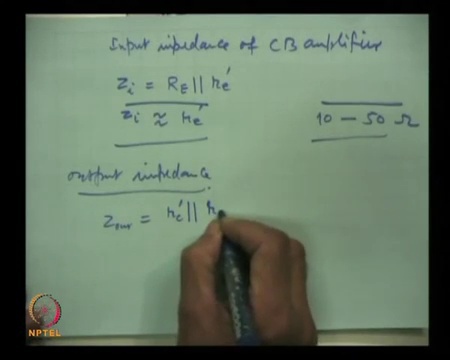 Input impedance of CB amplifier
Zi = RE || re'
Zi ≈ re'
10 - 50 Ω
output impedance
Zout = rc' || r
NPTEL